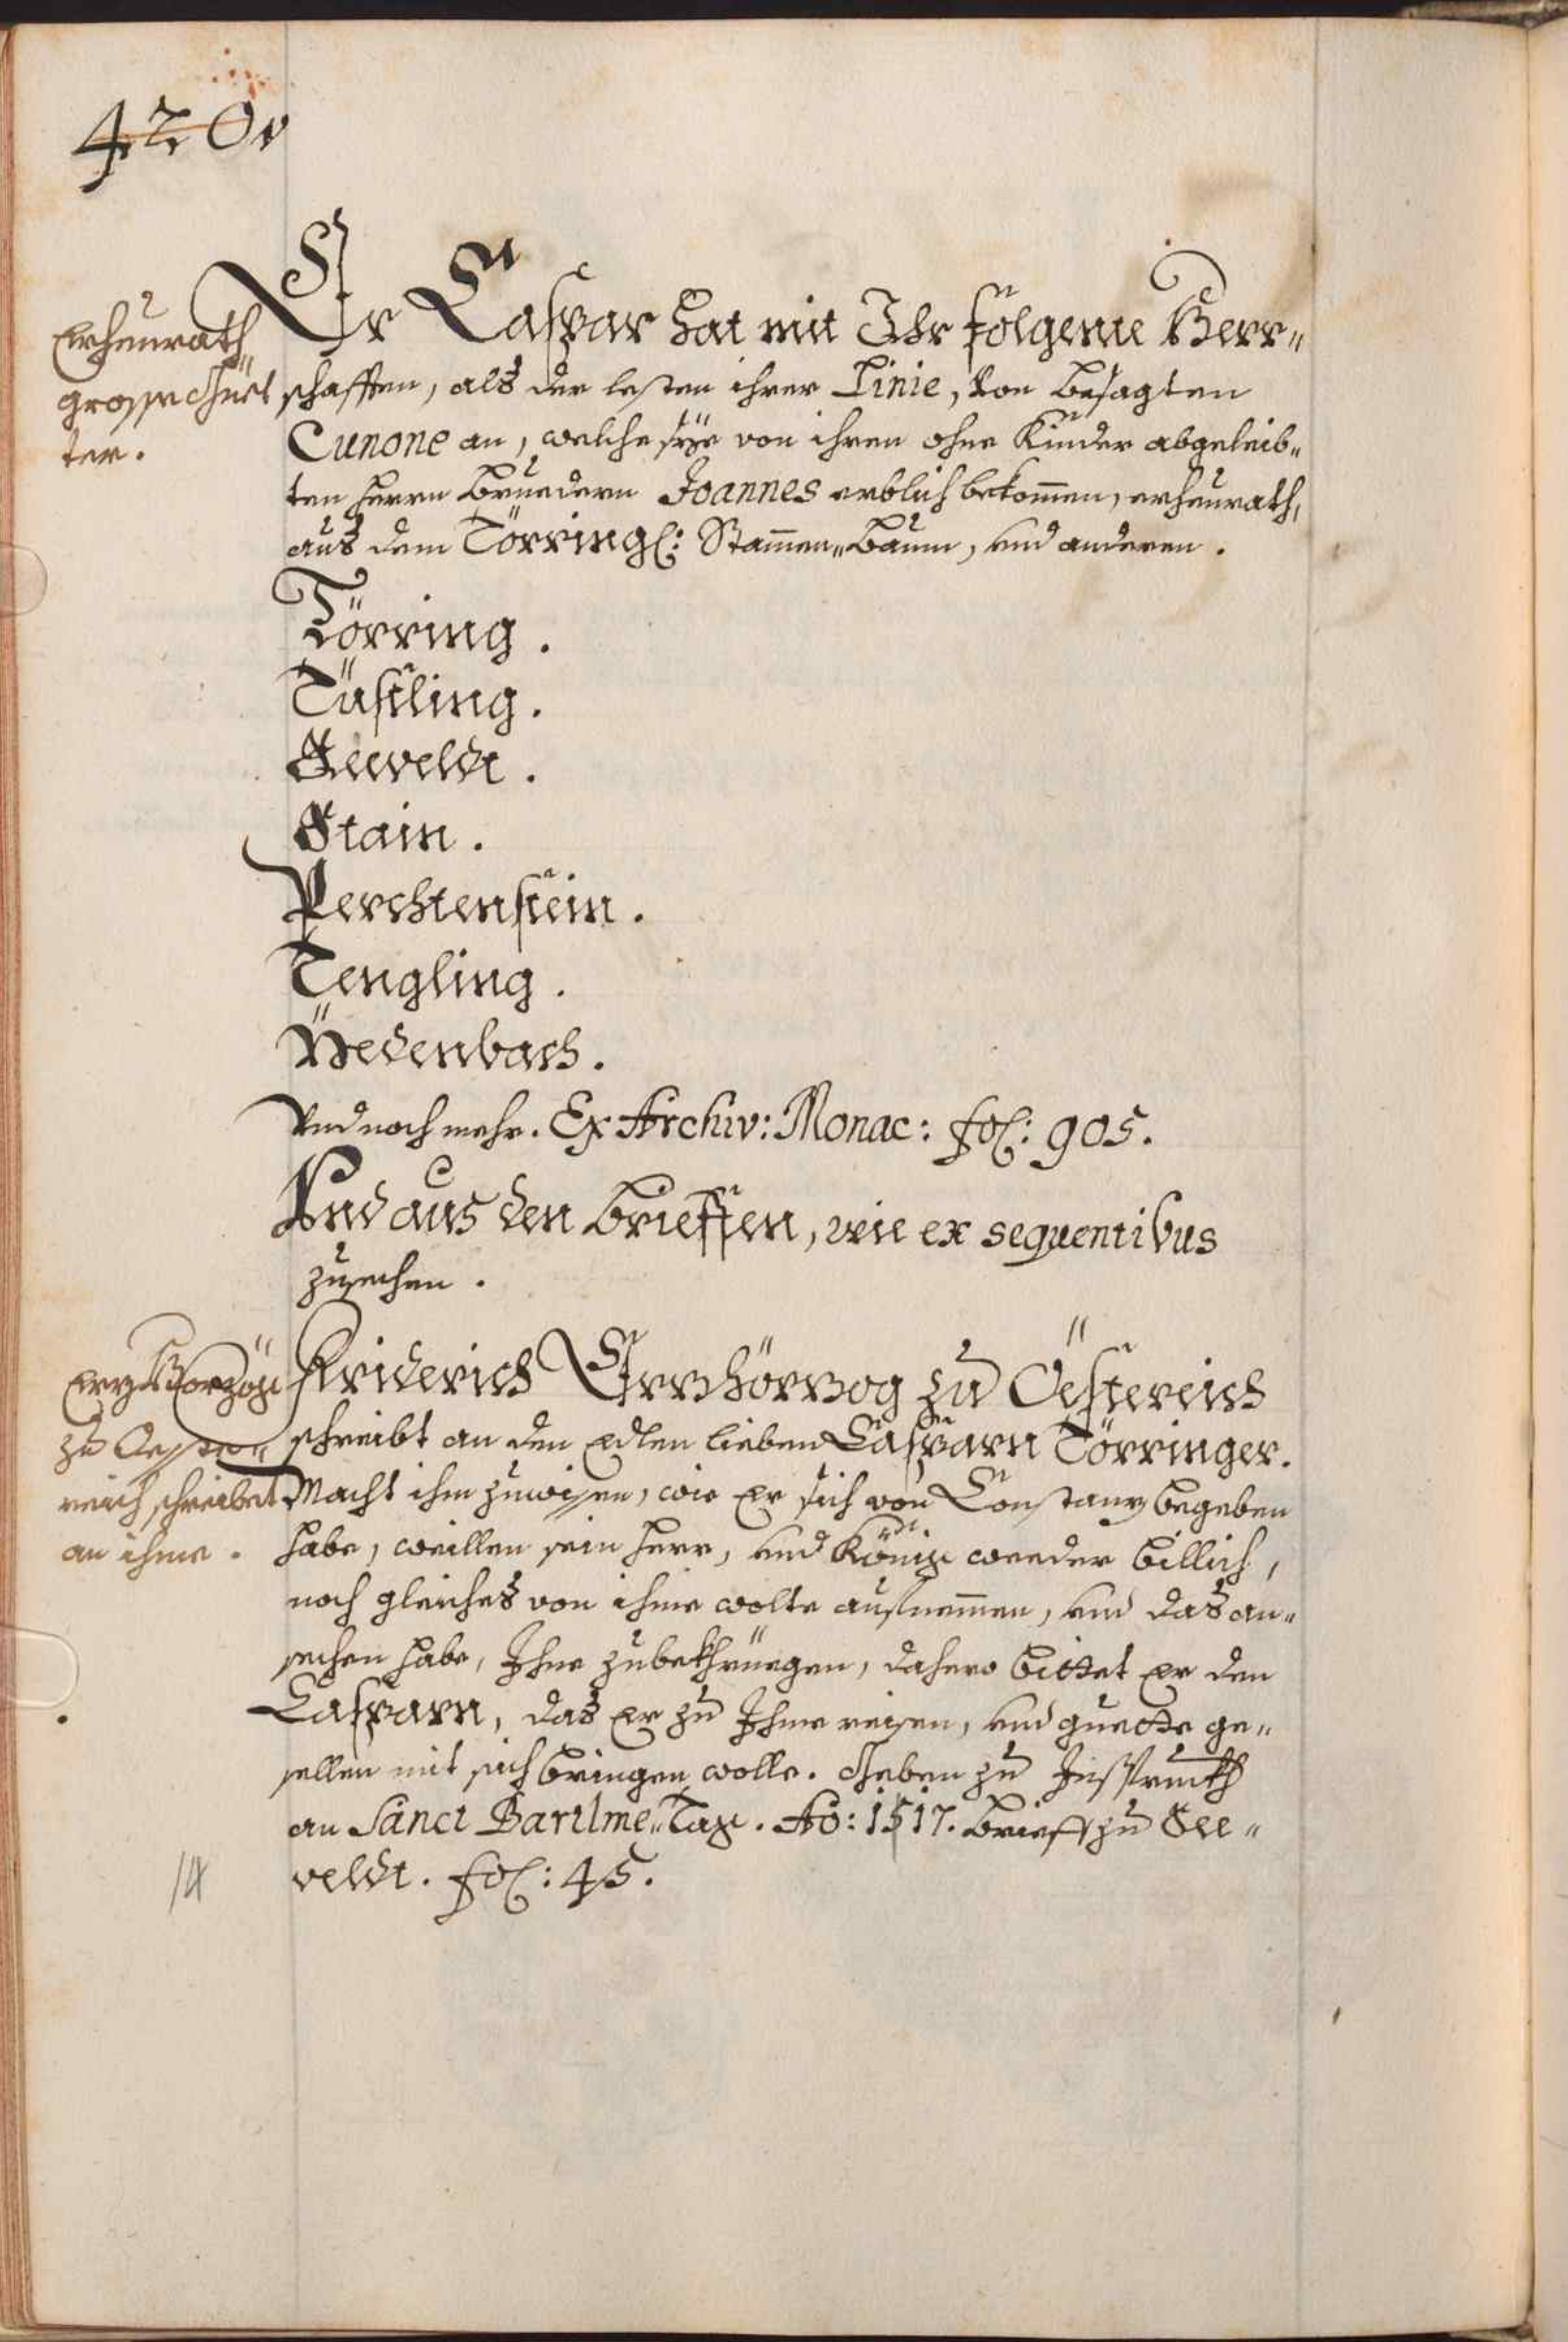 420v
Er Caspar hat mit Ihr folgente Herr„
Erheurath
grosse Güet
ter.
schafften, als der lesten ihrer Linie, von besagten
Cunone an, welche sye von ihren ohne Kinder abgeleib„
ten herrn Bruedern Joannes erblich bekom̅en, erheurath,
aus dem Törringl: Stam̅en„Baum, und anderen.
Törring.
Tüßling.
Seeveldt.
Stain.
Perchtenstein.
Tengling.
Medenbach.
Und noch mehr. Ex Archiv: Monac: fol: 905.
Und aus den Brieffen, wie ex sequentibus
zusechen.
Erzherzog
zu Oester„
reich schreibet
an ihme.
Friderich Erzhörzog zu Oestereich
schreibt an den edlen lieben Casparn Törringer.
Macht ihm zuwissen, wie er sich von Constanz begeben
habe, weillen sein herr, und König weeder billich,
noch gleiches von ihme wolte aufnem̅en, und das an„
sechen habe, Ihne zubekhriegen, dahero bittet er den
Casparn, das er zu Ihme reisen, und guette ge„
sellen mit sich bringen wolle. Geben zu Insprukh
an Sanct Bartlme„Tag. Ao: 1517. Brieff zu See„
veldt. fol: 45.
14